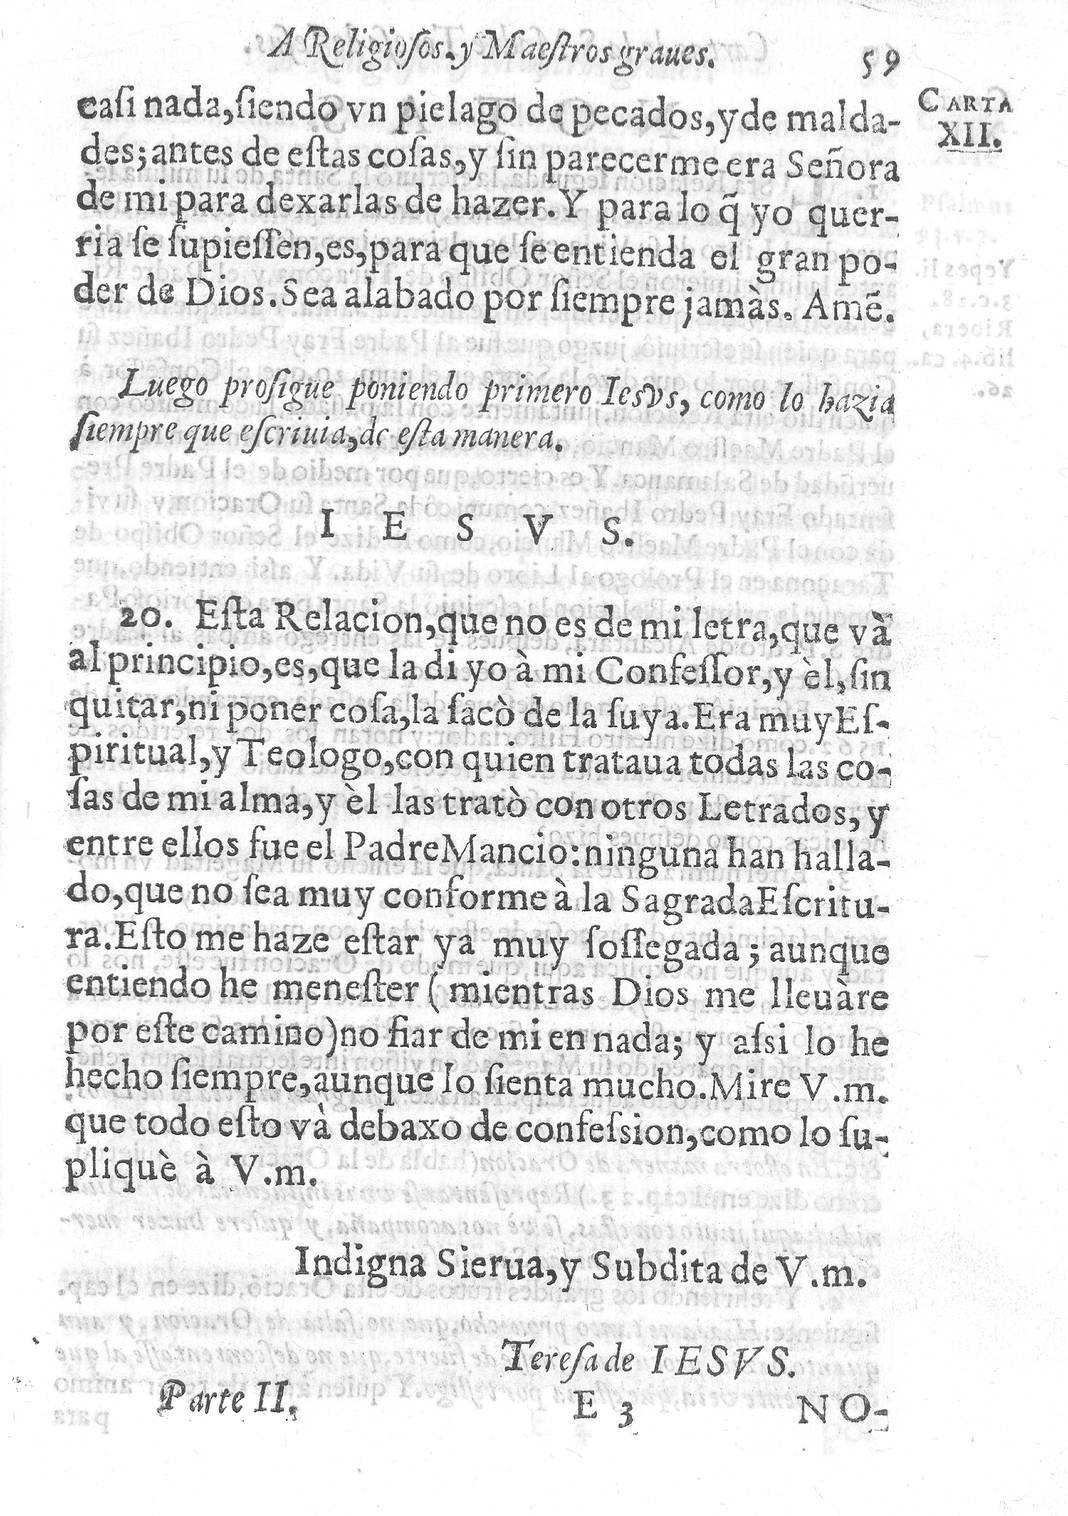 A Religioſos, y Maeſtros graues. 59
CARTA
XII.
caſi nada, ſiendo vn pielago de pecados, y de malda-
des; antes de eſtas coſas, y ſin parecerme era Señora
de mi para dexarlas de hazer. Y para lo q̃ yo quer-
ria ſe ſupieſſen, es, para que ſe entienda el gran po-
der de Dios. Sea alabado por ſiempre jamàs. Amẽ.
Luego proſigue poniendo primero Ieſvs, como lo hazia
ſiempre que eſcriuia, de eſta manera.
I E S V S.
20. Eſta Relacion, que no es de mi letra, que và
al principio, es, que la di yo à mi Confeſſor, y èl, ſin
quitar, ni poner coſa, la ſacò de la ſuya. Era muy Eſ-
piritual, y Teologo, con quien trataua todas las co-
ſas de mi alma, y èl las tratò con otros Letrados, y
entre ellos fue el Padre Mancio: ninguna han halla-
do, que no ſea muy conforme à la Sagrada Eſcritu-
ra. Eſto me haze eſtar ya muy ſoſſegada; aunque
entiendo he meneſter (mientras Dios me lleuàre
por eſte camino) no fiar de mi en nada; y aſsi lo he
hecho ſiempre, aunque lo ſienta mucho. Mire V.m.
que todo eſto và debaxo de confeſsion, como lo ſu-
pliquè à V.m.
Indigna Sierua, y Subdita de V.m.
Tereſa de IESVS.
Parte II. E 3 NO-